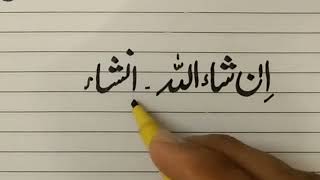 اِن شاء اللہ ۔ اِنشاء